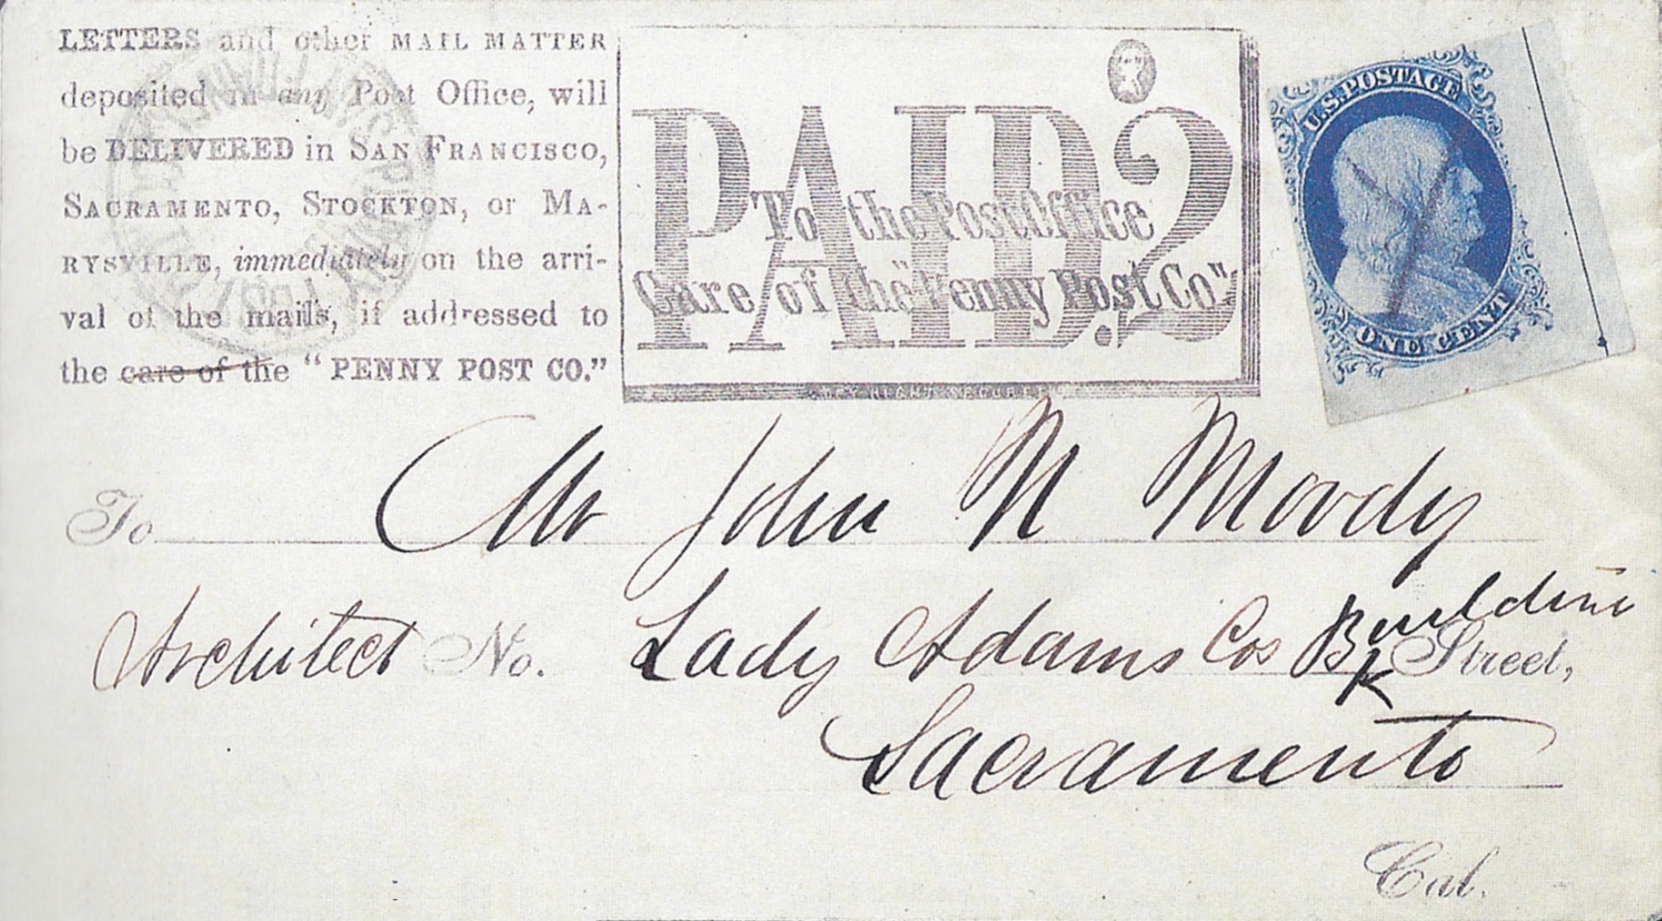 LETTERS and other MAIL MATTER
deposited in any Post Office, will
be DELIVERED in SAN FRANCISCO,
SACRAMENTO, STOCKTON, or MA-
RYSVILLE, immediately on the arri-
val of the mails, if addressed to
the care of the "PENNY POST CO."
PAID.2
To the Post Office
Care of the "Penny Post Co"
U.S. POSTAGE
ONE CENT
To Mr John N Moody
Architect No. Lady Adams Cos Building Street,
Sacramento
Cal.